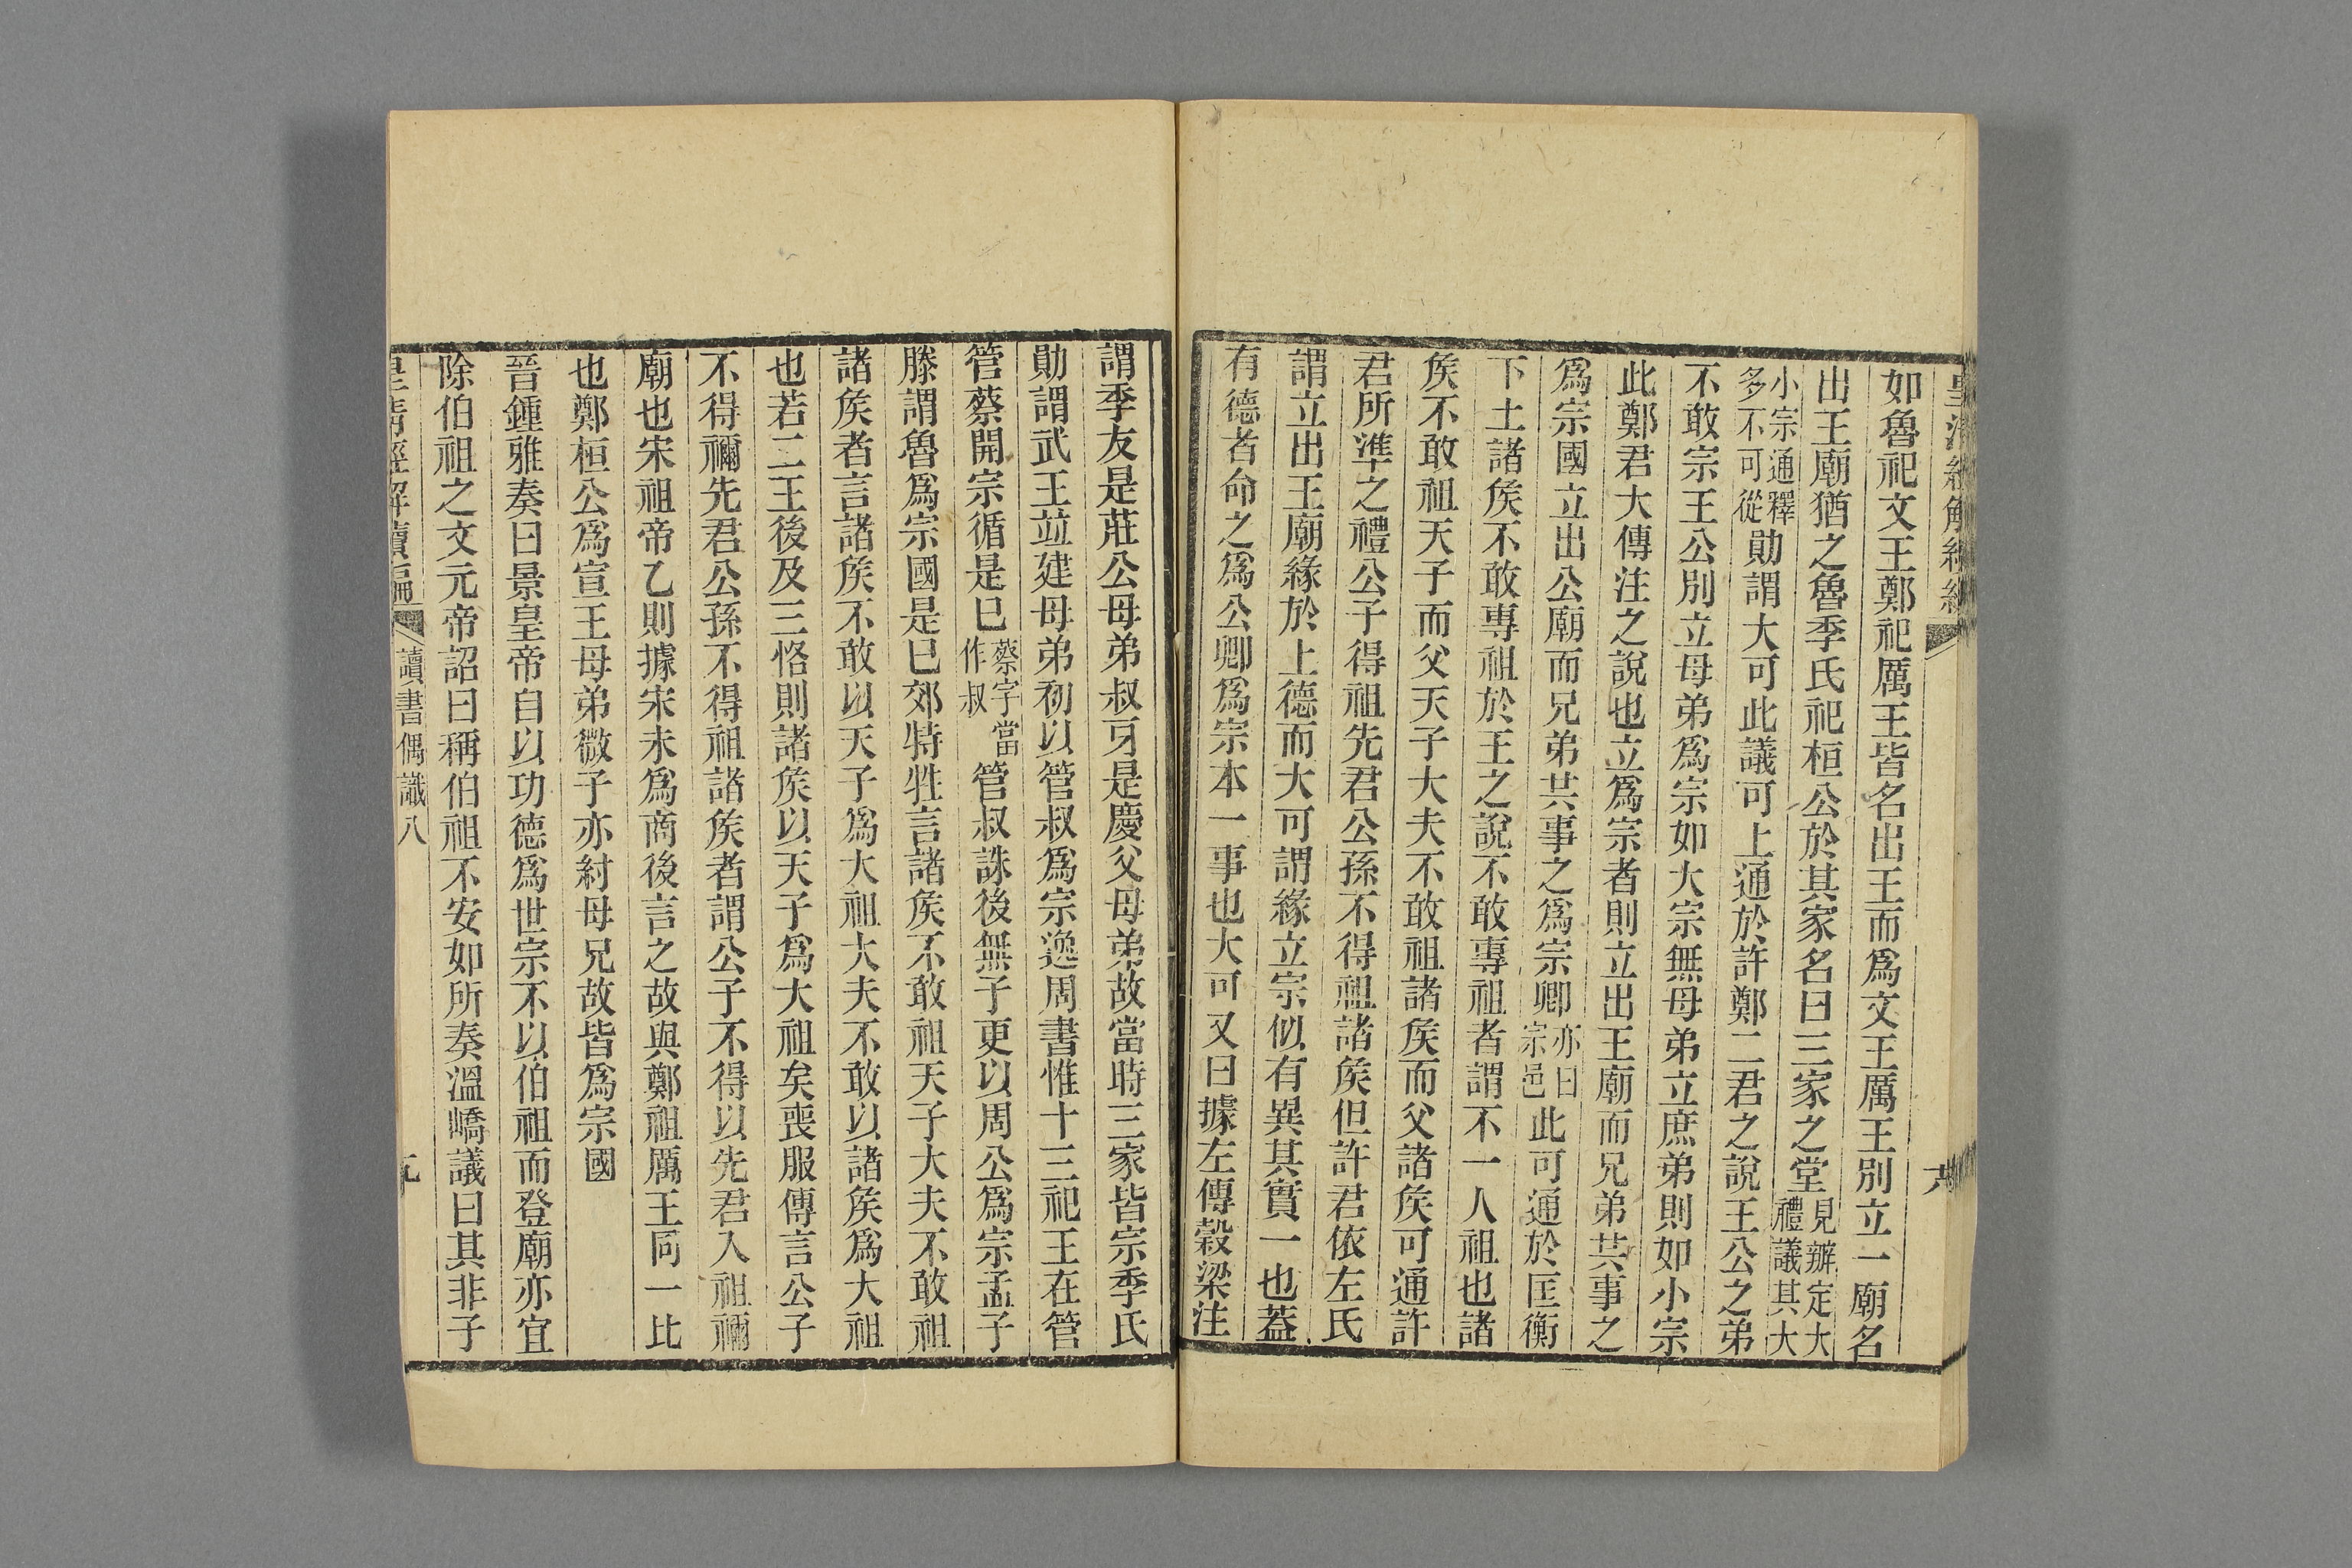 如魯祀文王鄭祀厲王皆名出王而爲文王厲王別立一廟名
出王廟猶之魯季氏祀桓公於其家名曰三家之堂見辨定大禮議其大
小宗通釋多不可從勛謂大可此議可上通於許鄭二君之說王公之弟
不敢宗王公別立母弟爲宗如大宗無母弟立庶弟則如小宗
此鄭君大傳注之說也立爲宗者則立出王廟而兄弟共事之
爲宗國立出公廟而兄弟共事之爲宗卿亦曰宗邑此可通於匡衡
下土諸矦不敢專祖於王之說不敢專祖者謂不一人祖也諸
矦不敢祖天子而父天子大夫不敢祖諸矦而父諸矦可通許
君所準之禮公子得祖先君公孫不得祖諸矦但許君依左氏
謂立出王廟緣於上德而大可謂緣立宗似有異其實一也蓋
有德者命之爲公卿爲宗本一事也大可又曰據左傳穀梁注
謂季友是莊公母弟叔牙是慶父母弟故當時三家皆宗季氏
勛謂武王竝建母弟初以管叔爲宗逸周書惟十三祀王在管
管蔡開宗循是巳蔡字當作叔管叔誅後無子更以周公爲宗孟子
滕謂魯爲宗國是巳郊特牲言諸矦不敢祖天子大夫不敢祖
諸矦者言諸矦不敢以天子爲大祖大夫不敢以諸矦爲大祖
也若二王後及三恪則諸矦以天子爲大祖矣喪服傳言公子
不得禰先君公孫不得祖諸矦者謂公子不得以先君入祖禰
廟也宋祖帝乙則據宋未爲商後言之故與鄭祖厲王同一比
也鄭桓公爲宣王母弟微子亦紂母兄故皆爲宗國
晉鍾雅奏曰景皇帝自以功德爲世宗不以伯祖而登廟亦宜
除伯祖之文元帝詔曰稱伯祖不安如所奏溫嶠議曰其非子
皇清經解續編
讀書偶識八
九